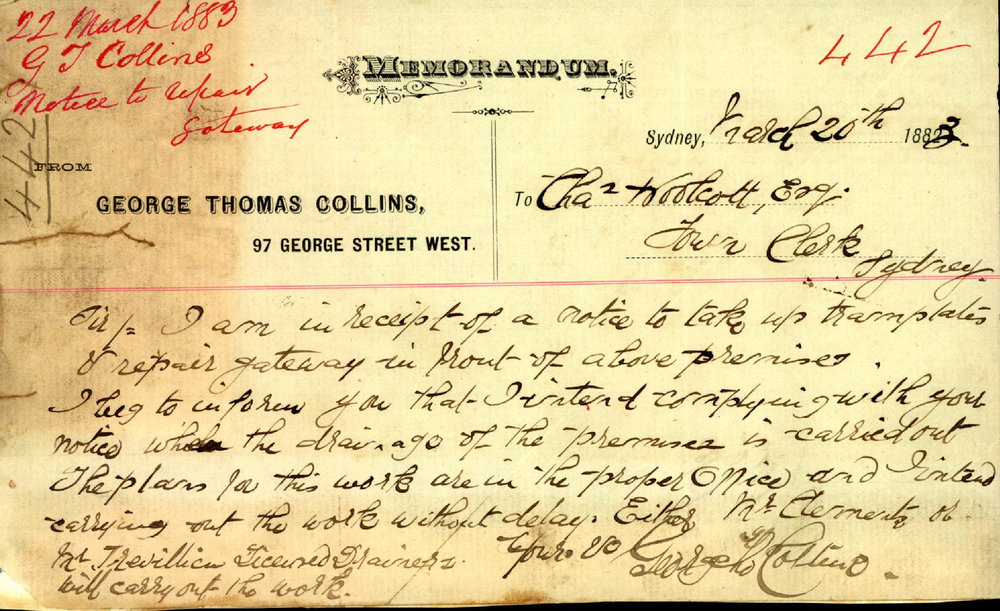 22 March 1883
G T Collins
Notice to repair
gateway
442
442
MEMORANDUM.
Sydney, March 20th 1883
FROM
GEORGE THOMAS COLLINS,
97 GEORGE STREET WEST.
To Chas Woolcott, Esq.
Town Clerk
Sydney.
Sir/= I am in receipt of a notice to take up tramplates
& repair gateway in front of above premises.
I beg to inform you that I intend complying with your
notice when the drainage of the premises is carried out
The plans for this work are in the proper Office and I intend
carrying out the work without delay. Either Mr Clements or
Mr Trevillian Licensed Drainers
will carry out the work.
Yours
George Th Collins.